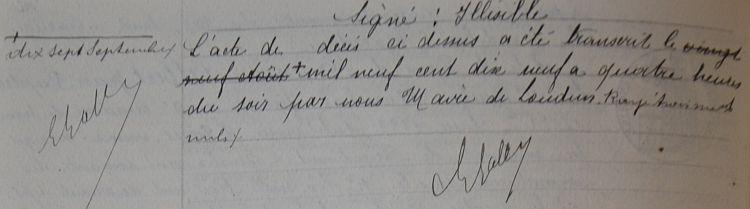 Signé : Illisible
+ dix sept Septembre
L'acte de décès ci dessus a été transcrit le vingt
neuf Août + mil neuf cent dix neuf a quatre heures
du soir par nous Maire de Loudun. Rayé trois mots
nuls